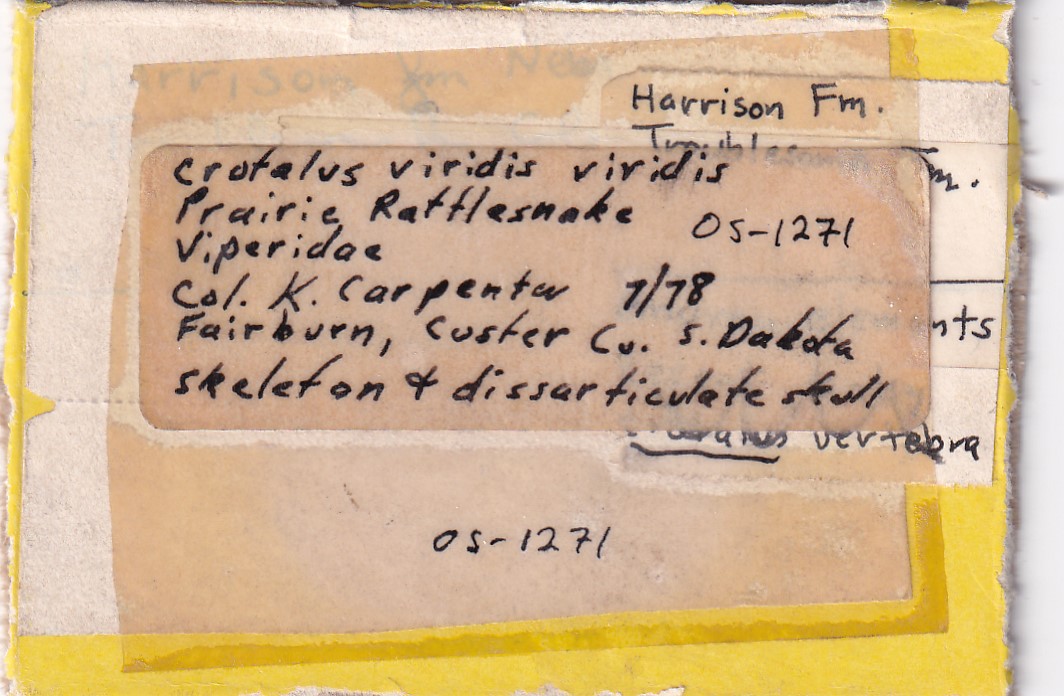 Harrison Fm Neb
Harrison Fm.
Troublesome Fm.
Crotalus viridis viridis
Prairie Rattlesnake
OS-1271
Viperidae
Col. K. Carpenter 7/78
Fairburn, Custer Co. S. Dakota
nts
skeleton & dissarticulate skull
vertebra
OS-1271